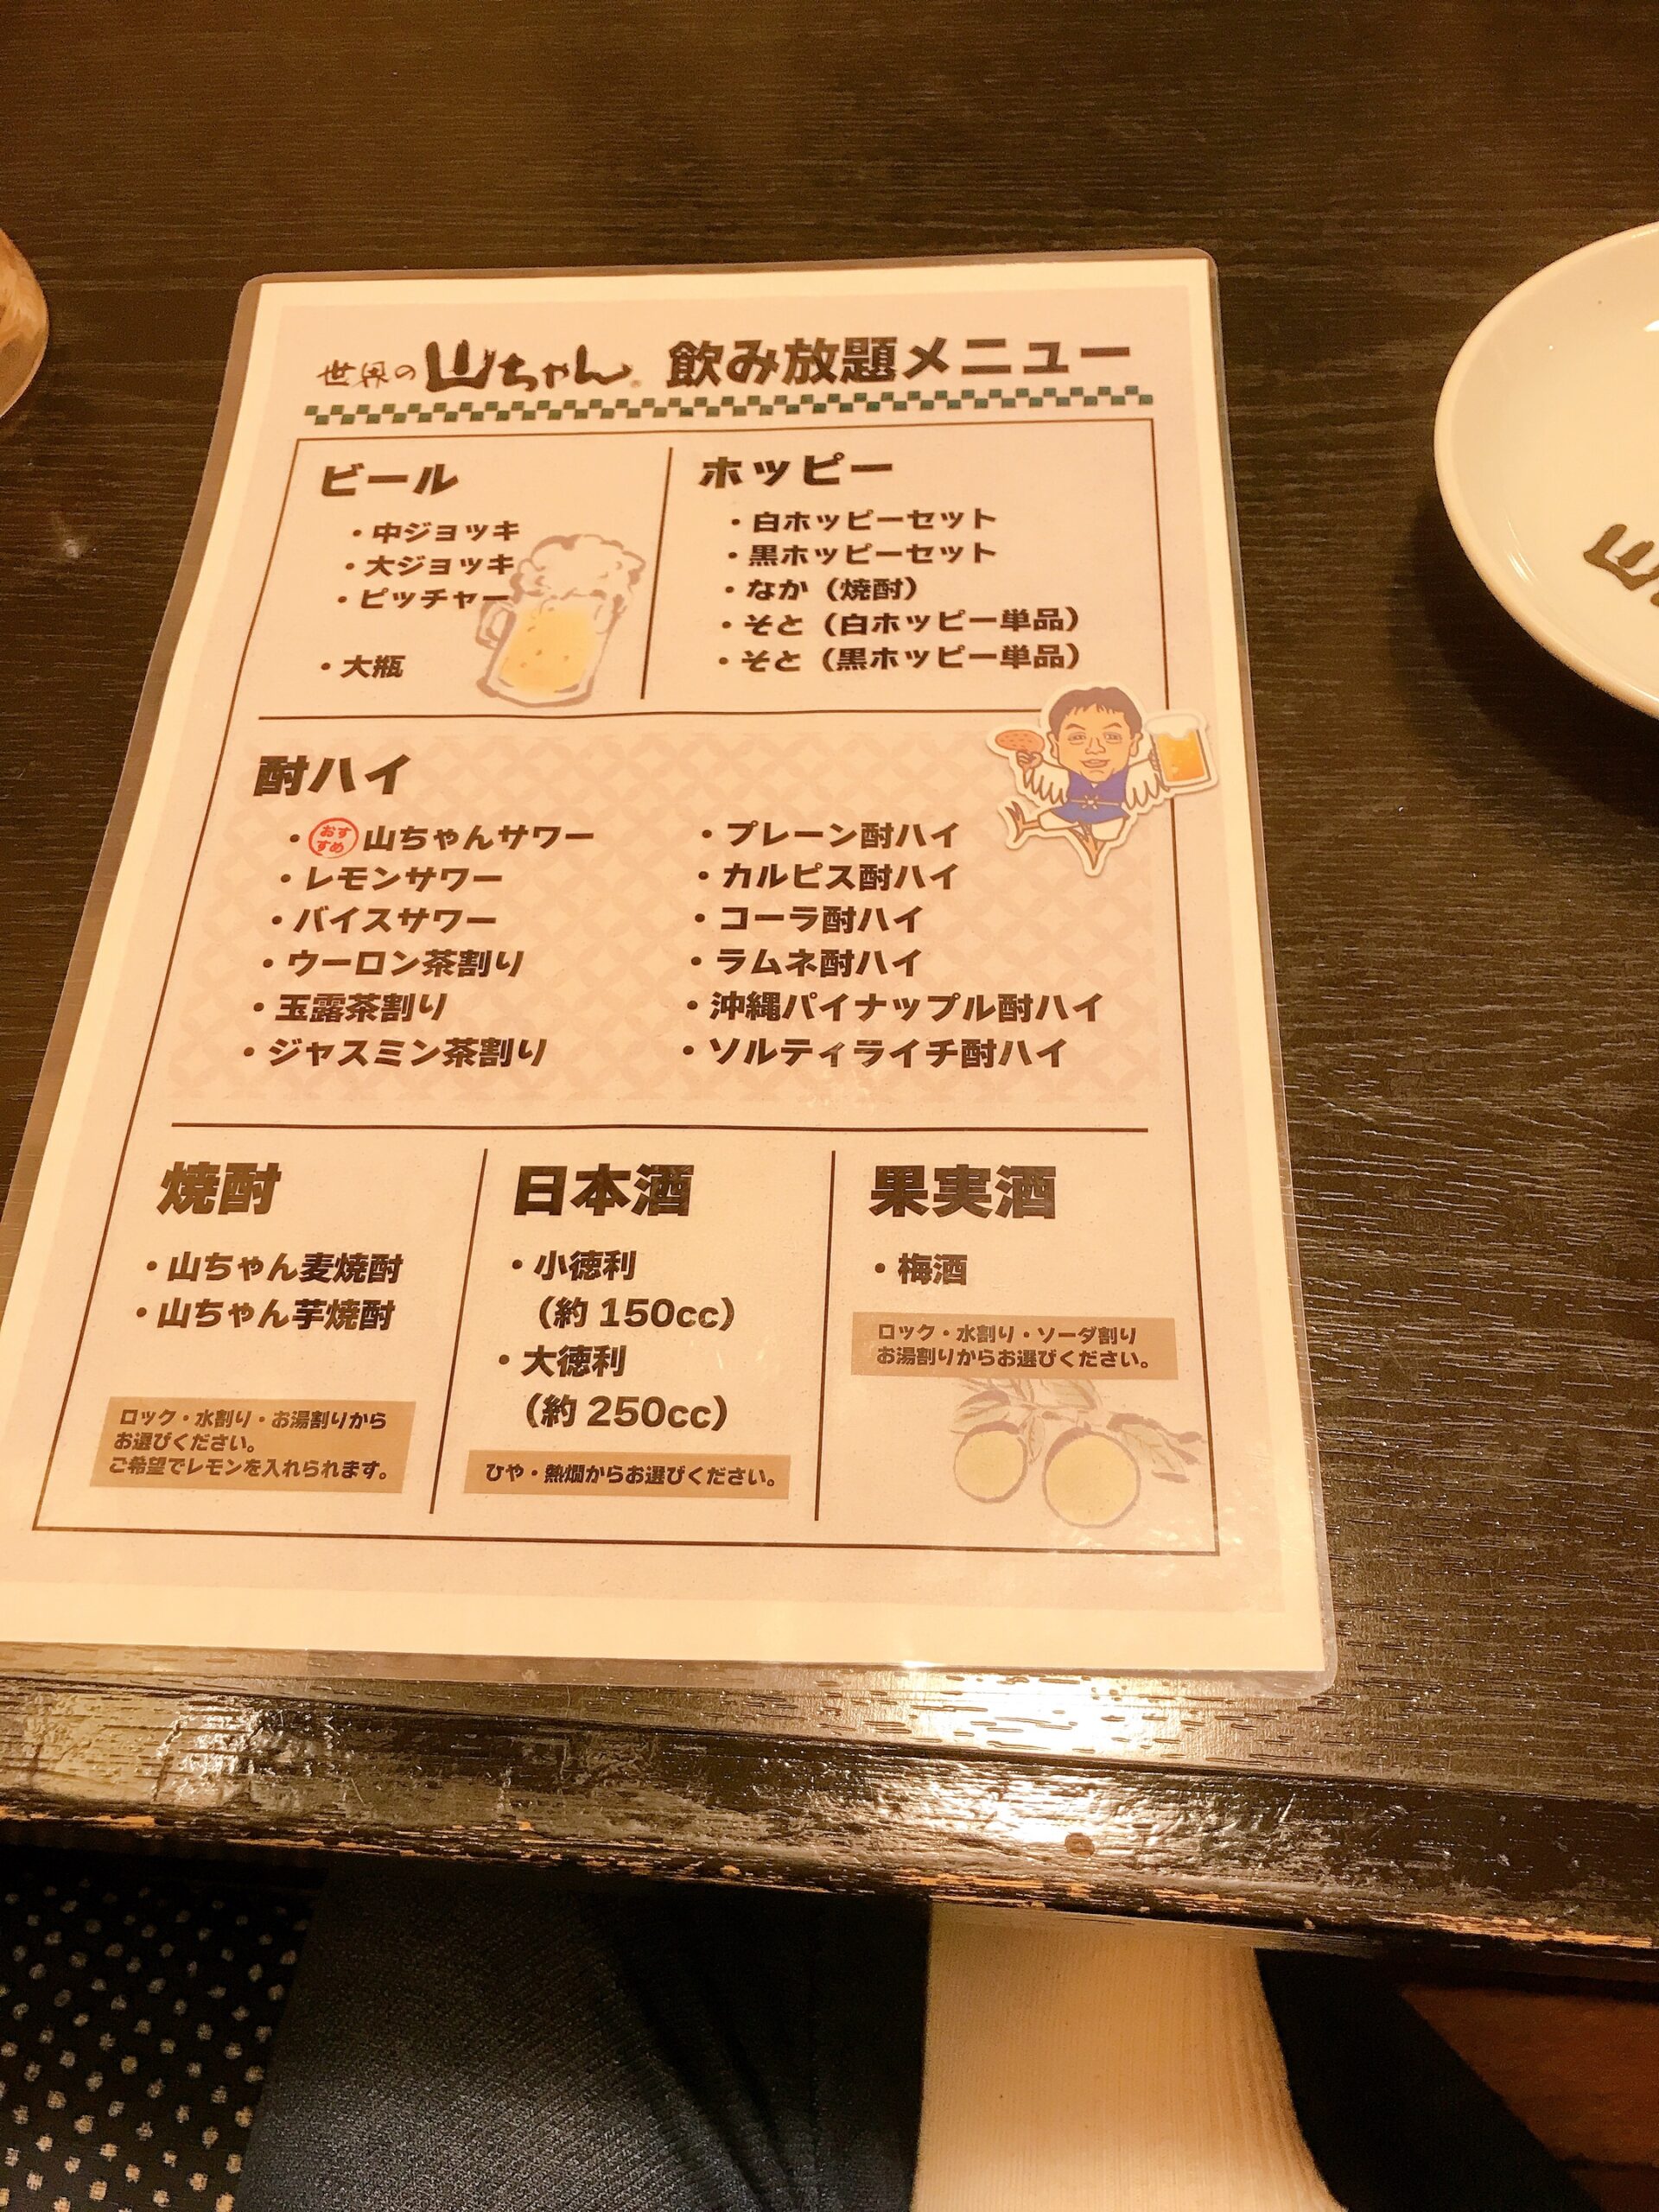 世界の山ちゃん® 飲み放題メニュー
ビール
・中ジョッキ
・大ジョッキ
・ピッチャー
・大瓶
ホッピー
・白ホッピーセット
・黒ホッピーセット
・なか（焼酎）
・そと（白ホッピー単品）
・そと（黒ホッピー単品）
酎ハイ
・おすすめ 山ちゃんサワー
・レモンサワー
・バイスサワー
・ウーロン茶割り
・玉露茶割り
・ジャスミン茶割り
・プレーン酎ハイ
・カルピス酎ハイ
・コーラ酎ハイ
・ラムネ酎ハイ
・沖縄パイナップル酎ハイ
・ソルティライチ酎ハイ
焼酎
・山ちゃん麦焼酎
・山ちゃん芋焼酎
ロック・水割り・お湯割りから
お選びください。
ご希望でレモンを入れられます。
日本酒
・小徳利
（約150cc）
・大徳利
（約250cc）
ひや・熱燗からお選びください。
果実酒
・梅酒
ロック・水割り・ソーダ割り
お湯割りからお選びください。
山